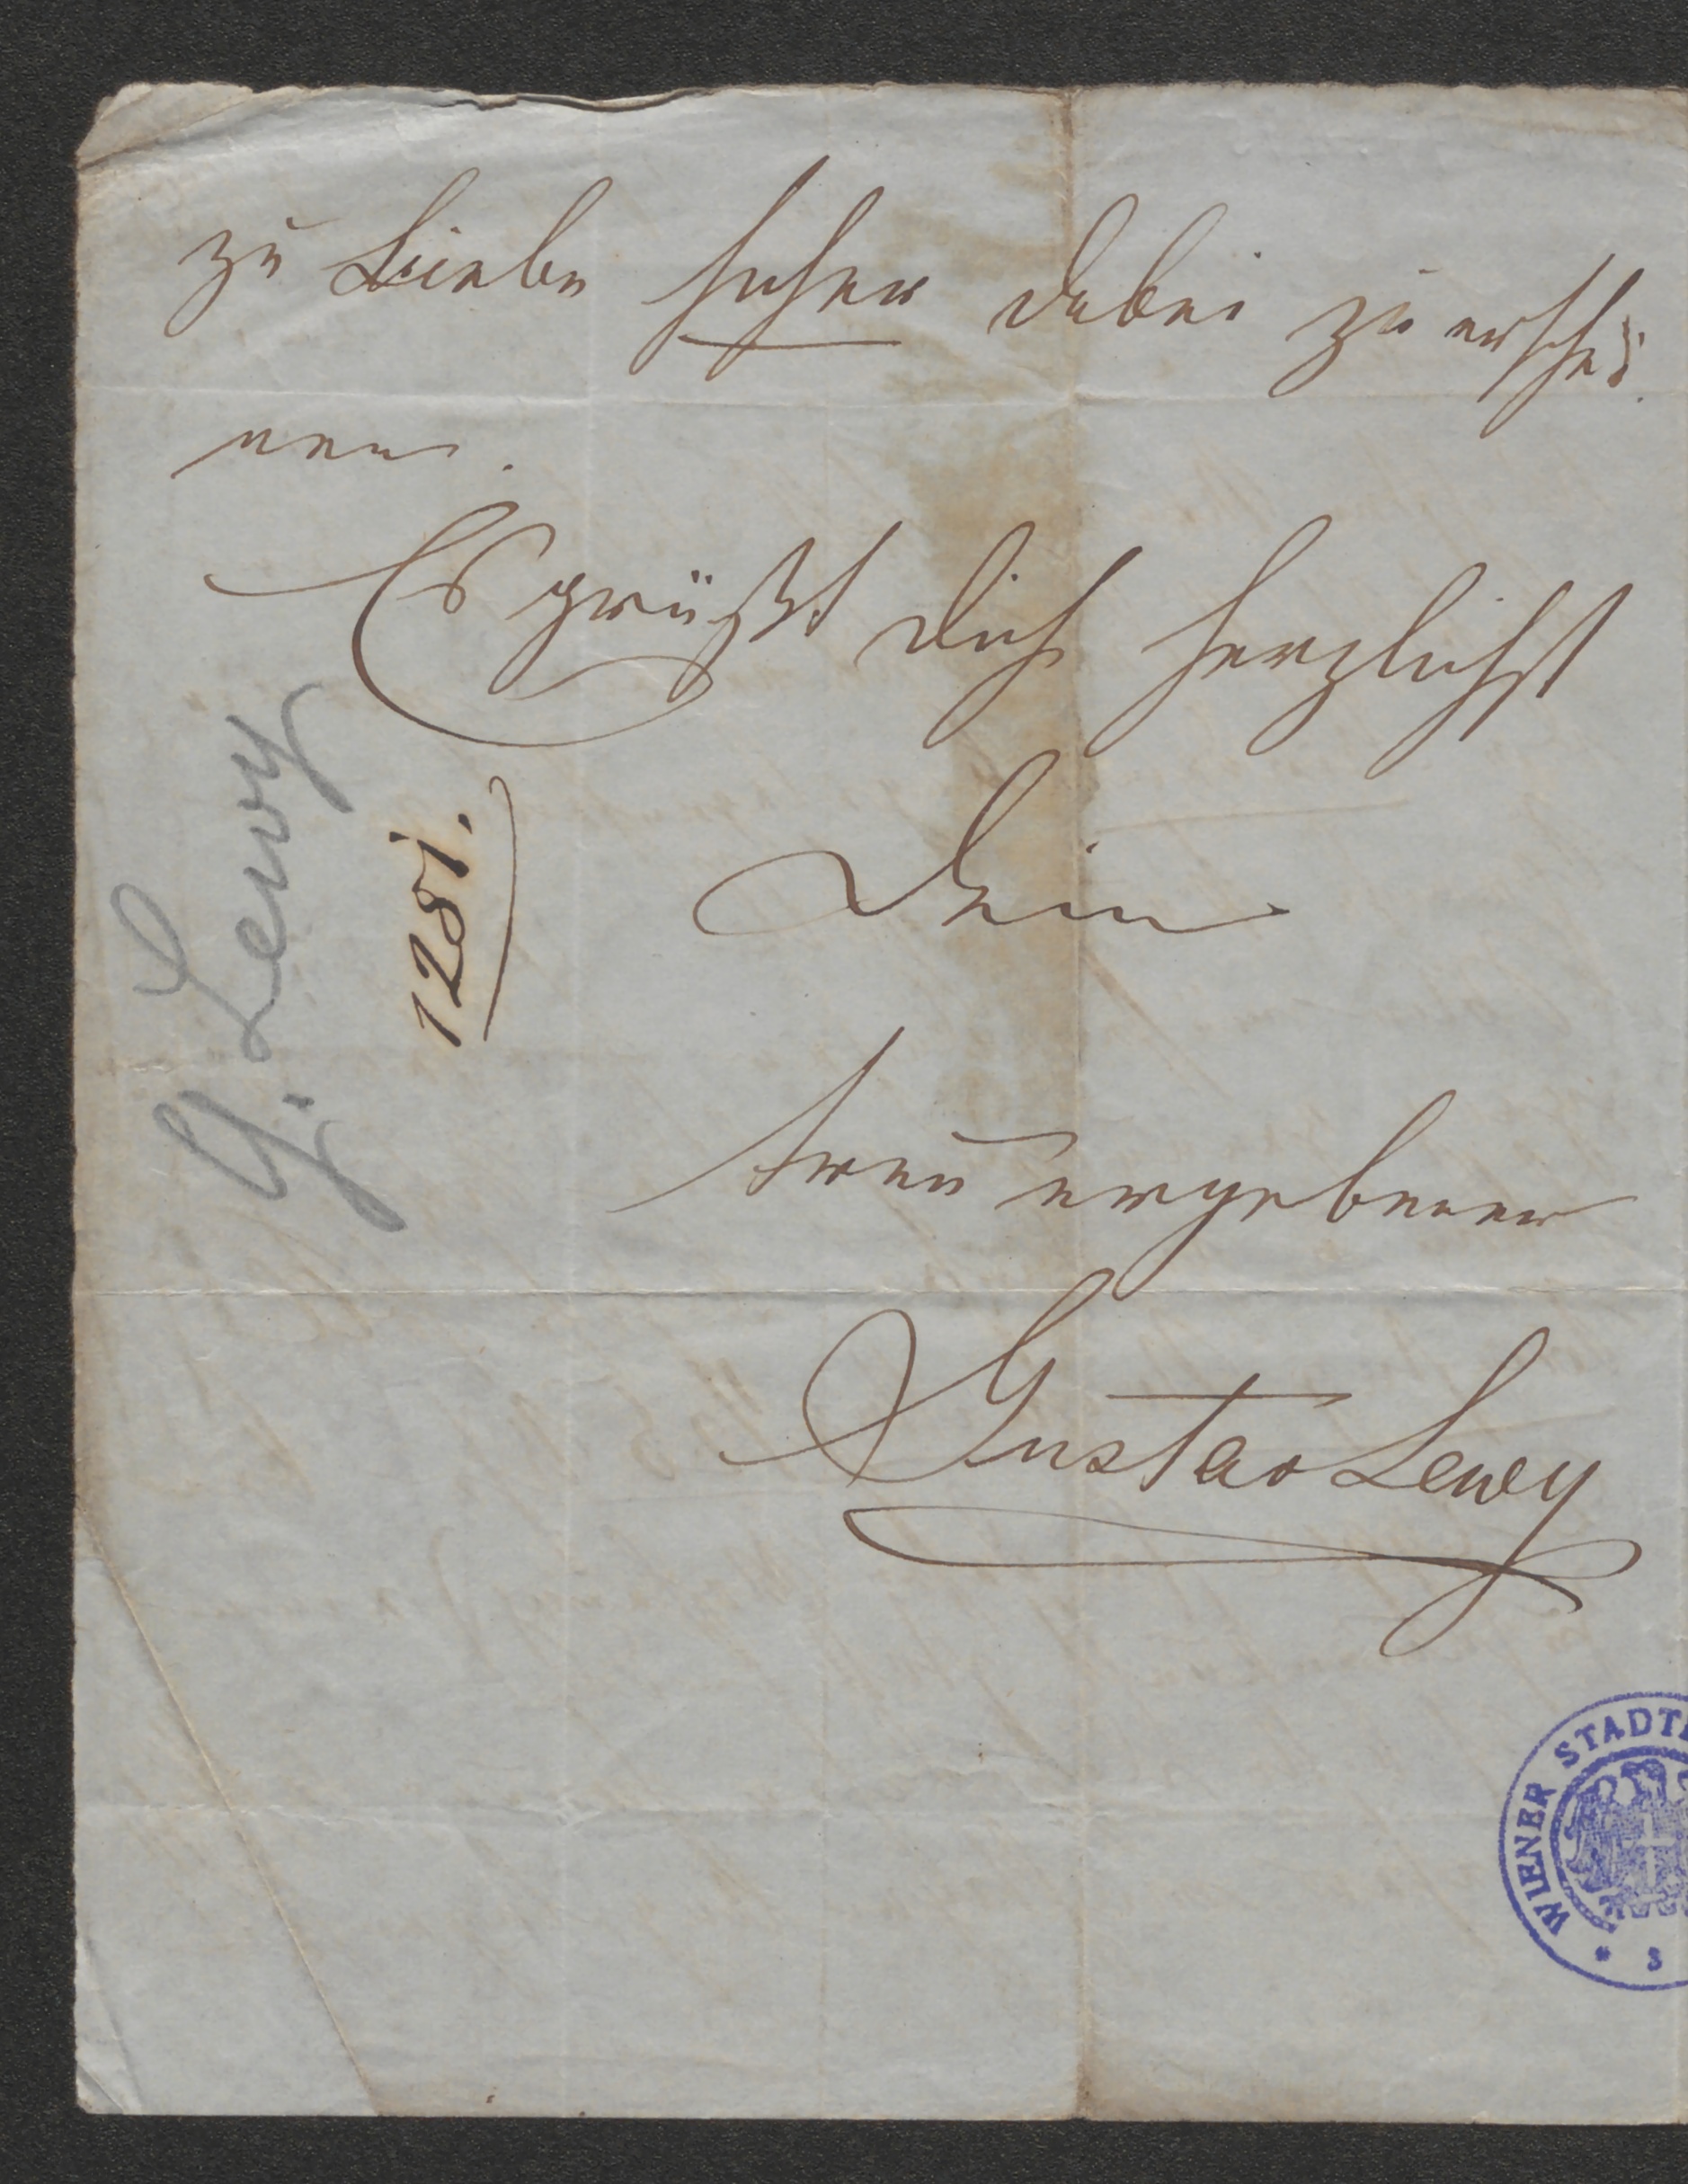 zu Liebe sicher dabei zu erschei-
nen.
Es grüßt Dich herzlichst
Dein
treu ergebener
Gustav Lewy
G. Lewy
1281.
WIENER STADT